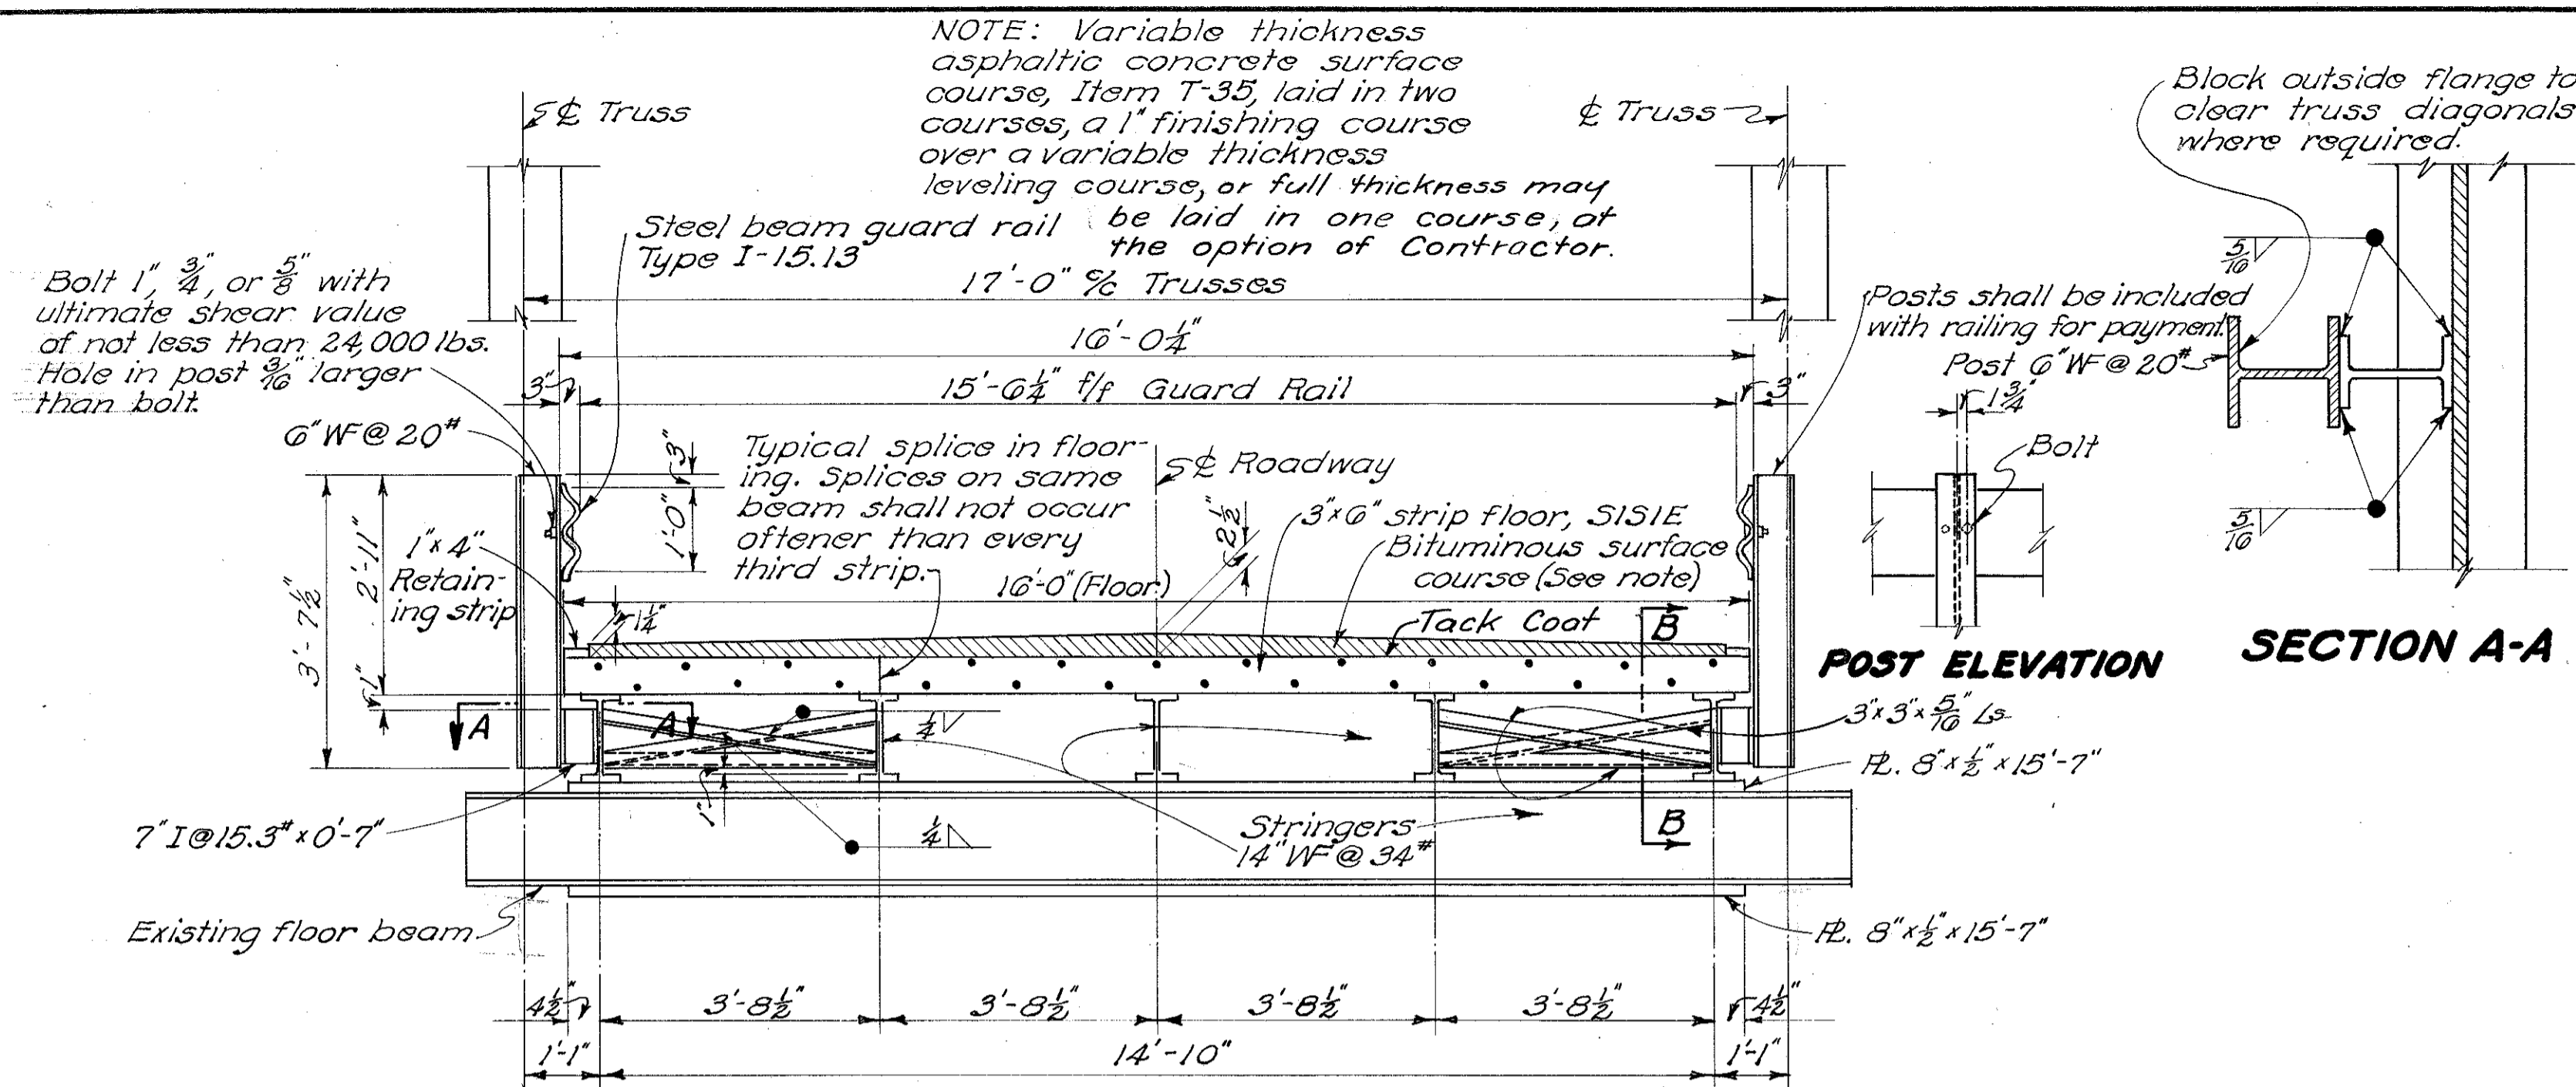 NOTE: Variable thickness
asphaltic concrete surface
course, Item T-35, laid in two
courses, a 1" finishing course
over a variable thickness
leveling course, or full thickness may
be laid in one course, at
the option of Contractor.
℄ Truss
℄ Truss
Block outside flange to
clear truss diagonals
where required.
Steel beam guard rail
Type I-15.13
Bolt 1", 3/4", or 5/8" with
ultimate shear value
of not less than 24,000 lbs.
Hole in post 3/16" larger
than bolt.
17'-0" c/c Trusses
16'-0 1/4"
15'-6 1/4" f/f Guard Rail
3"
3"
Posts shall be included
with railing for payment.
Post 6" WF @ 20#
5/16
5/16
1 3/4"
Bolt
6" WF @ 20#
3"
1'-0"
Typical splice in floor-
ing. Splices on same
beam shall not occur
oftener than every
third strip.
℄ Roadway
2 1/2"
3"x6" strip floor, S1S1E
Bituminous surface
course (See note)
16'-0" (Floor)
Tack Coat
1"x4"
Retain-
ing strip
1 1/4"
3'-7 1/2"
2'-11"
1"
A
A
B
B
POST ELEVATION
SECTION A-A
1/4
1/4
1"
3"x3"x5/16" Ls
PL. 8"x1/2"x15'-7"
7" I @ 15.3# x 0'-7"
Stringers
14" WF @ 34#
Existing floor beam
PL. 8"x1/2"x15'-7"
4 1/2"
3'-8 1/2"
3'-8 1/2"
3'-8 1/2"
3'-8 1/2"
4 1/2"
1'-1"
14'-10"
1'-1"